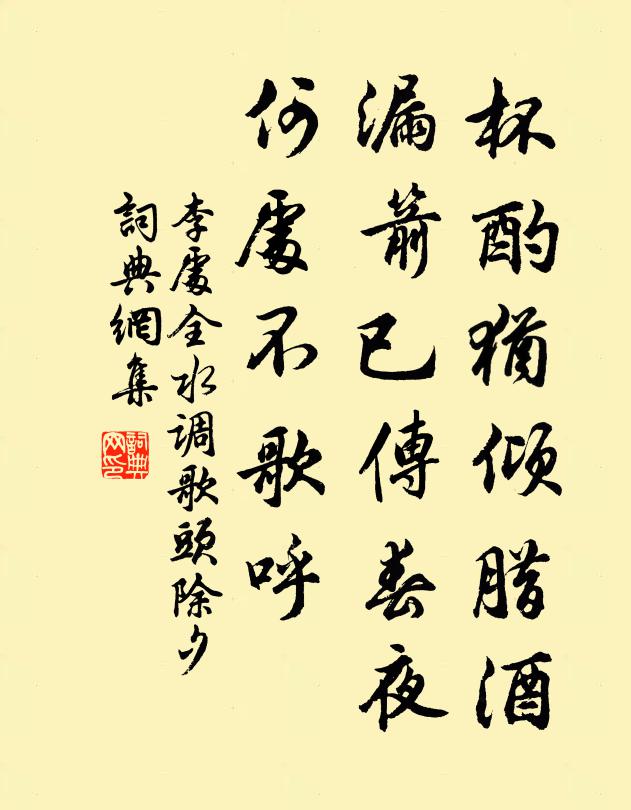 杯酌猶傾腊酒
漏箭已傳春夜
何處不歌呼
李處全水调歌頭除夕
詞典網集
詞典网印